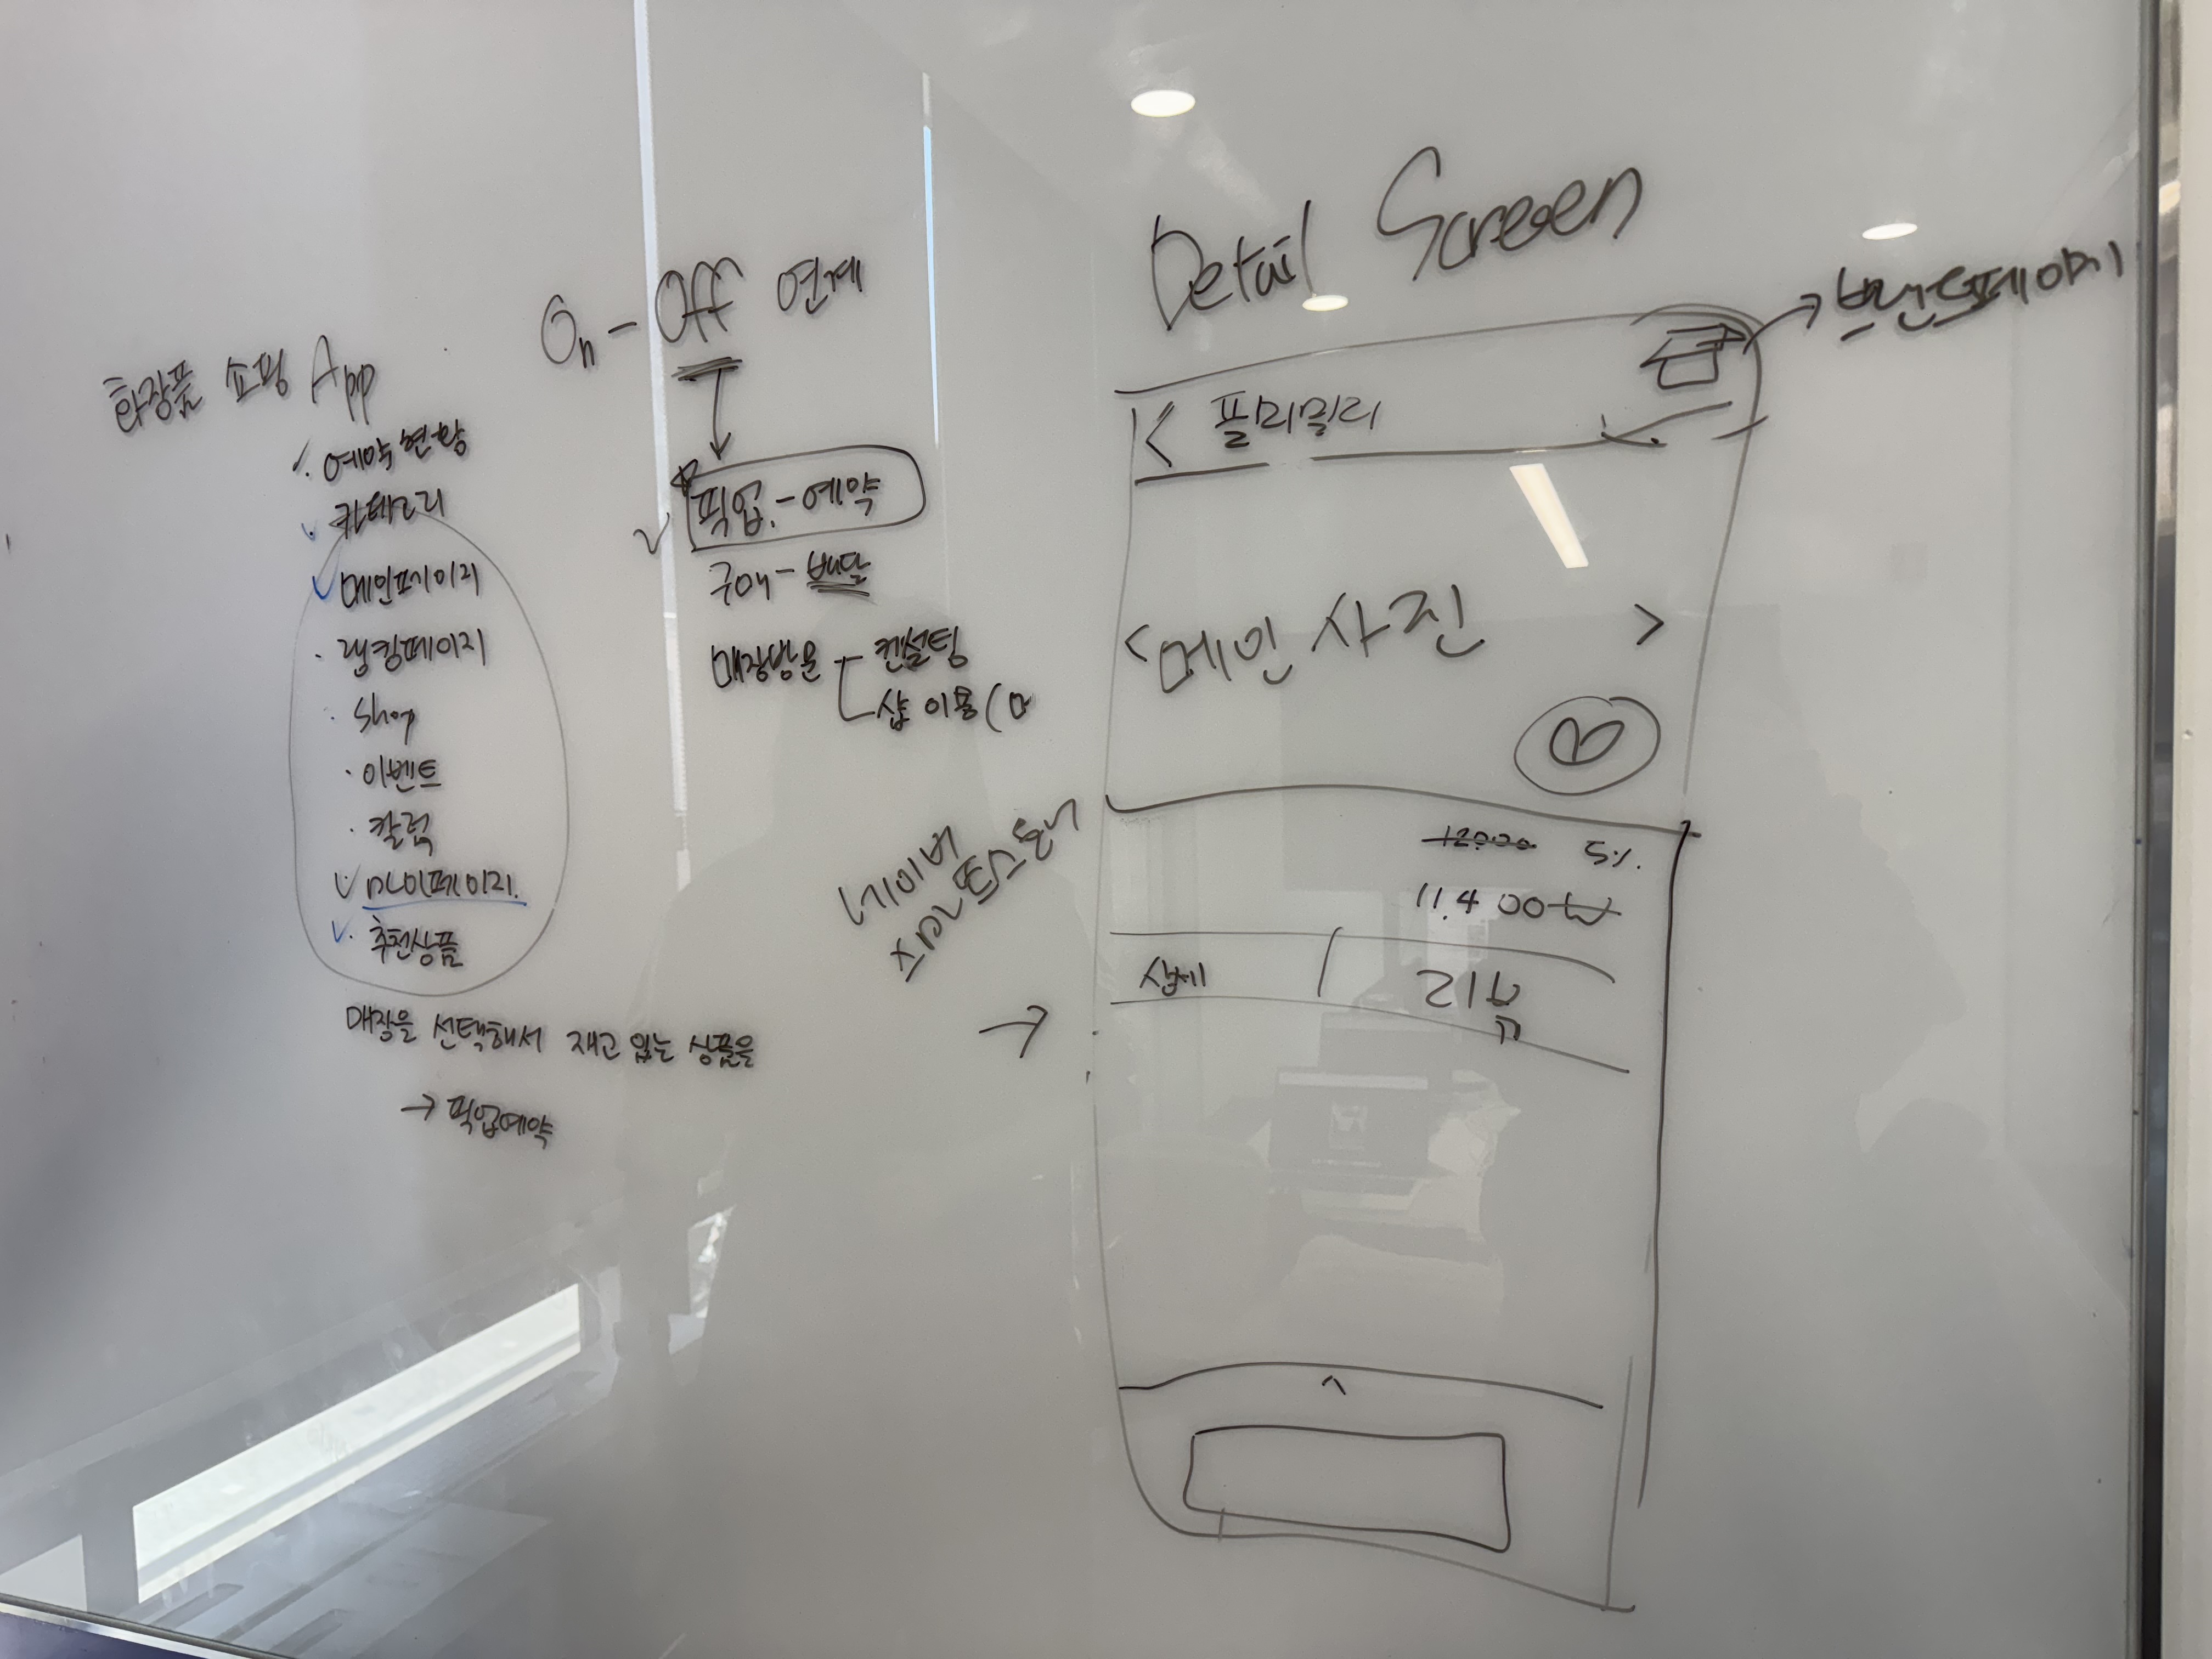 화장품 쇼핑 App
예약현황
카테고리
메인페이지
랭킹페이지
Shop
이벤트
칼럼
마이페이지.
추천상품
매장을 선택해서 재고 있는 상품을
→ 픽업예약
On - Off 연계
픽업 - 예약
구매 - 배달
매장방문 - 컨설팅
샵 이용 (
네이버
스마트스토어
Detail Screen
→ 브랜드페이지
< 필리밀리
< 메인 사진 >
12000 5%
11.400원
상세 리뷰